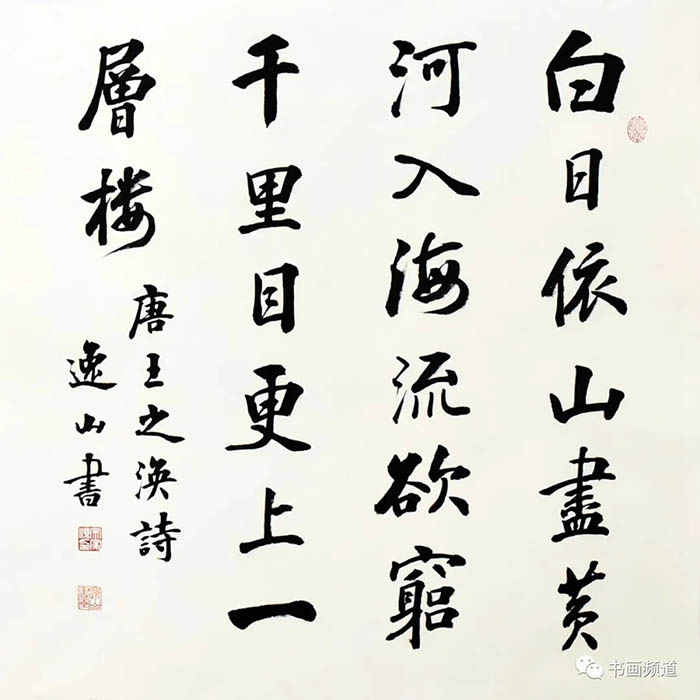 白日依山盡黄
河入海流欲窮
千里目更上一
層楼
唐王之涣詩
逸山書
书画频道